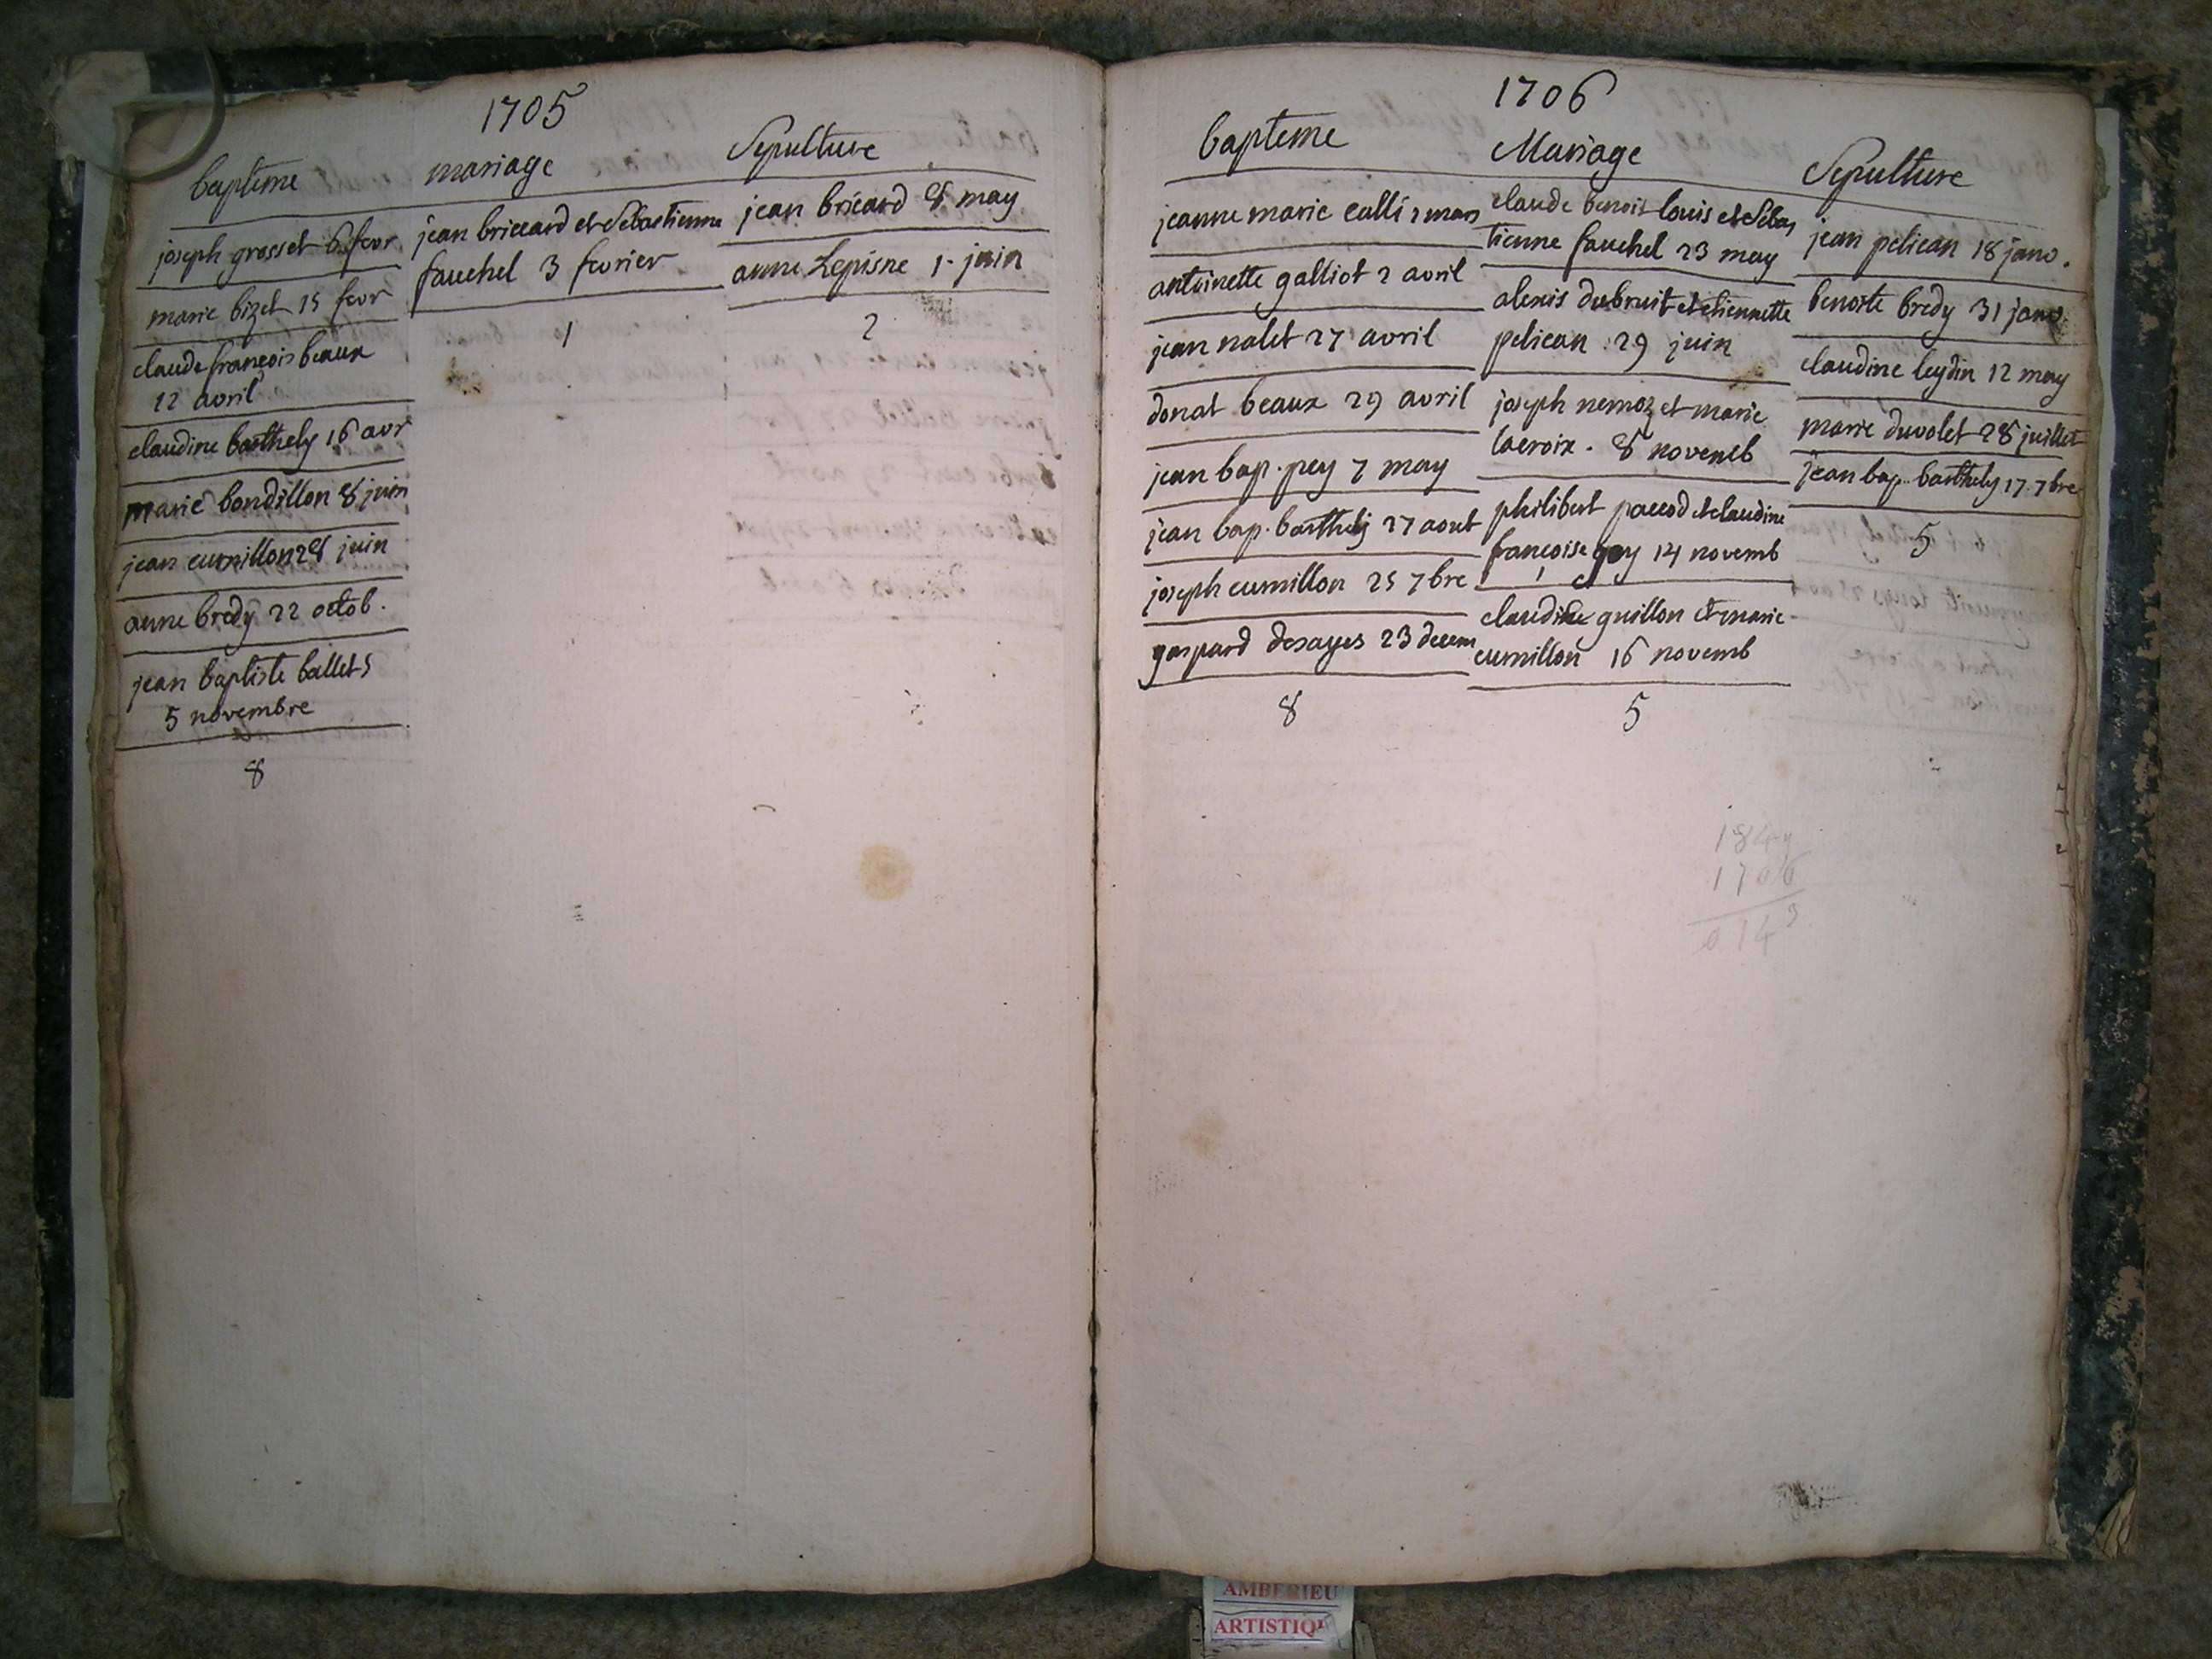 1705
bapteme
joseph grosset 6 fevr
marie bizet 15 fevr
claude françois beaux
12 avril
claudine barthely 16 avr
marie bondillon 8 juin
jean cumillon 28 juin
anne bredy 22 octob.
jean baptiste ballet 5
5 novembre
8
mariage
jean briccard et Sebastienne
fauchel 3 fevrier
1
Sepulture
jean bricard 8 may
anne Lepisne 1. juin
2
1706
bapteme
jeanne marie calli 2 mars
antoinette galliot 2 avril
jean nalet 27 avril
donat beaux 29 avril
jean bap. pey 7 may
jean bap. barthelj 27 aout
joseph cumillon 25 7bre
gaspard desayes 23 decem
8
Mariage
claude benoist louis et Sebas
tienne fauchel 23 may
alexis dubruit et etiennette
pelican 29 juin
joseph nemoz et marie
lacroix. 8 novemb
philibert paccod et claudine
francoise gay 14 novemb
guillon et marie
cumillon 16 novemb
5
Sepulture
jean pelican 18 janv.
benoite bredy 31 janv
claudine leydin 12 may
marie duvolet 28 juillet
jean bap. barthely 17 7bre
5
1849
1706
0143
AMBERIEU